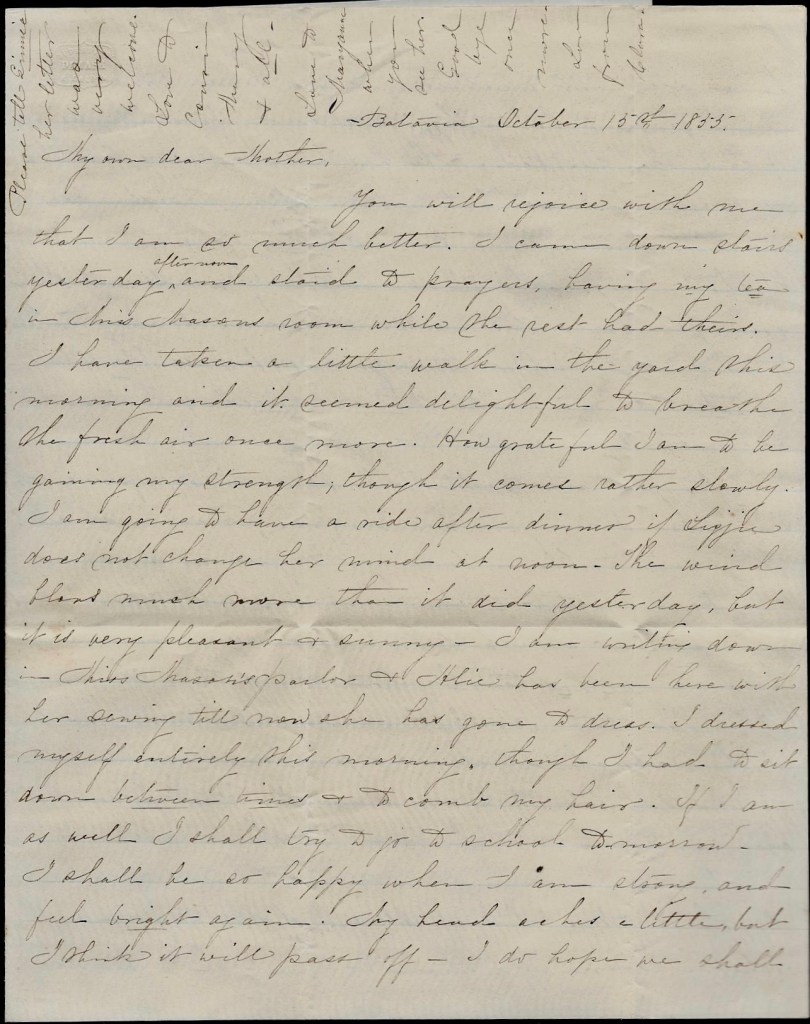 Please tell Linnie
her letter
was
very
welcome.
Love to
Cousin
Henry
& all.
Love to
Maryanne
when
you
see her.
Good
bye
once
more.
from
Clara.
Batavia October 15th 1855.
My own dear Mother,
You will rejoice with me
that I am so much better. I came down stairs
yesterday afternoon and staid to prayers, having my tea
in Miss Masons room while the rest had theirs.
I have taken a little walk in the yard this
morning and it seemed delightful to breathe
the fresh air once more. How grateful I am to be
gaining my strength; though it comes rather slowly.
I am going to have a ride after dinner if Lizzie
does not change her mind at noon - The wind
blows much more than it did yesterday, but
it is very pleasant & sunny - I am writing down
in Miss Mason's parlor & Alie has been here with
her sewing till now she has gone to dress. I dressed
myself entirely this morning, though I had to sit
down between times & to comb my hair. If I am
as well I shall try to go to school tomorrow -
I shall be so happy when I am strong, and
feel bright again. My head aches a little, but
I think it will pass off - I do hope we shall